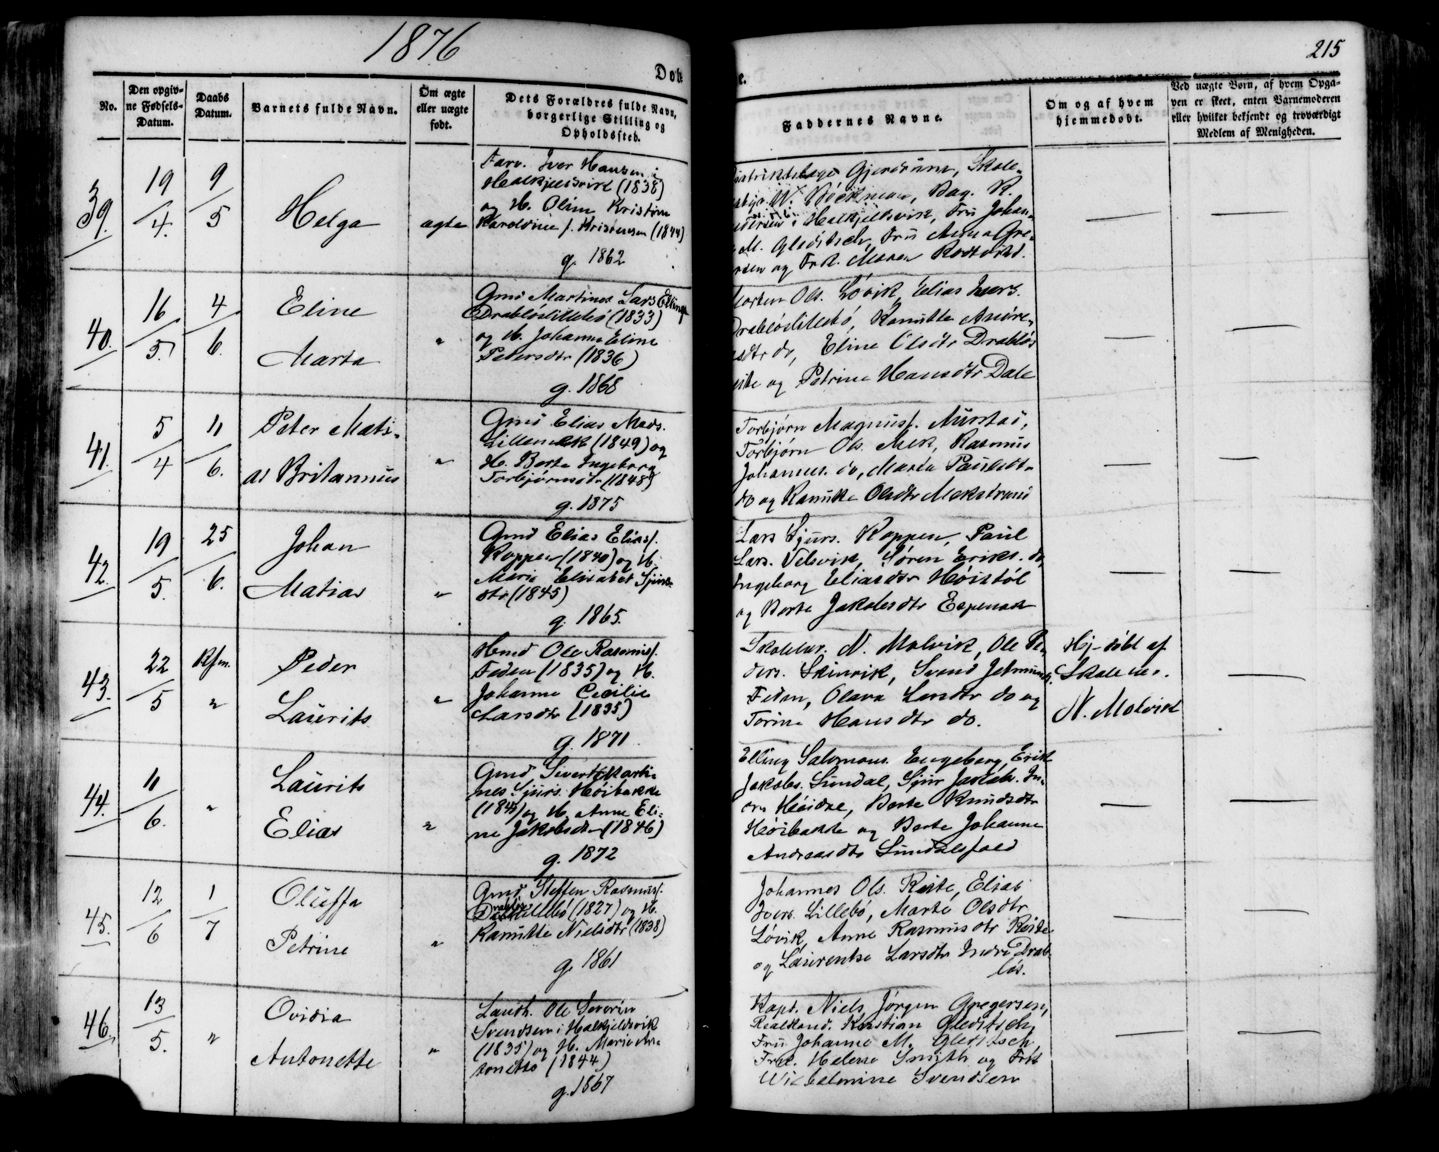 1876
215
Døbte.
No.
Den opgiv-
ne Fødsels-
Datum.
Daabs
Datum.
Barnets fulde Navn.
Om ægte
eller uægte
født.
Dets Forældres fulde Navn,
borgerlige Stilling og
Opholdssted.
Faddernes Navne.
Om og af hvem
hjemmedøbt.
Ved uægte Børn, af hvem Opga-
ven er skeet, enten Barnemoderen
eller hvilket bekjendt og troværdigt
Medlem af Menigheden.
39.
19/4.
9/5
Helga
ægte
Farv. Iver Hansen i
Halkjelsvik (1838)
og H. Oline Kristine
Karoline f. (1844)
g. 1862
Gjerdrum, Skole-
W. Böckman,
Halkjelsvik, Fru Johan-
M. Gleditsch, Fru Anna Gre-
og Frk. Maren
40.
16/5.
4/6.
Eline
Marta
"
Gmd Martinus Lars Ellings.
Drabløslillebø (1833)
og H. Johanne Eline
Petersdtr (1836)
g. 1868
Morten Ols. Løvik, Elias Ivers.
Drabløslillebø, Kanutte Andre-
asdtr do, Eline Olsdtr Drabløs
og Petrine Hansdtr Dale
41.
5/4
11/6.
Peter Mati-
as Britannus
"
Gmd Elias Mads.
(1849) og
H. Berte Ingeborg
Torbjørnsdtr (1848)
g. 1875
Torbjørn Magnusf. Aurstad,
Torbjørn Ols. Mek, Rasmus
Johannes. do, Marta Paulsdtr
do og Kanutte Olsdtr Mekstrand
42.
19/5.
25/6.
Johan
Matias
"
Gmd Elias Eliasf.
Koppen (1840) og H.
Marie Elisabet Sjurs-
dtr (1845)
g. 1865.
Lars Sjurs. Koppen, Paul
Lars. Velsvik, Søren Eriks. do,
Ingeborg Eliasdtr Høistøl
og Berte Jakobsdtr Espenak
43.
22/5
"
Peder
Laurits
"
Hmd Ole Rasmusf.
Feden (1835) og H.
Johanne Cecilie
Larsdtr (1835)
g. 1871
Skolelær. N. Molvik, Ole Pe-
ders. Steinvik, Svend
Feden, Olava Larsdtr do og
Torine Hansdtr do.
Hj-døbt af
Skolelær.
N. Molvik
44.
11/6.
"
Laurits
Elias
"
Gmd Sivert Marti-
nus Sjurs. Høibakke
(1845) og H. Anne Eli-
ne Jakobsdtr (1846)
g. 1872
Elling Salomons. Engeberg, Erik
Jakobs. Sundal, Sjur Jakobs. In-
dre Høidal, Berte Knudsdtr
Høibakke og Berte Johanne
Andreasdtr Sundalsfald
45.
12/6
1/7
Oluffa
Petrine
"
Gmd. Steffen Rasmusf.
Drabløslillebø (1827) og H.
Kanutte Nielsdtr (1838)
g. 1861
Johannes Ols. Reite, Elias
Ivers. Lillebø, Marte Olsdtr
Løvik, Anne Rasmusdtr Reite
og Laurentse Larsdtr Indre Drab-
løs.
46.
13/5.
"
Ovidia
Antonette
"
Landh. Ole Severin
Svendsen i Halkjelsvik
(1835) og H. Marie An-
tonette (1844)
g. 1867
Kapt. Niels Jørgen Gregersen,
Realkand. Kristian Gleditsch,
Fru Johanne M. Gleditsch,
Frk. Helene Smith og Frk.
Wilhelmine Svendsen